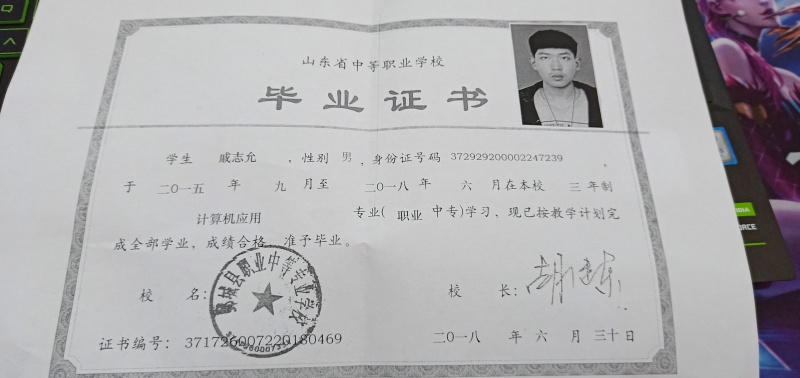 山东省中等职业学校
毕业证书
学生 戚志允 ，性别 男 ，身份证号码 372929200002247239 。
于 二〇一五 年 九 月至 二〇一八 年 六 月在本校 三 年制
计算机应用 专业( 职业 中专)学习，现已按教学计划完
成全部学业，成绩合格，准予毕业。
县职业中等专业学校
校 名： 校 长：
证书编号： 371726007220180469 二〇一八 年 六 月 三十 日